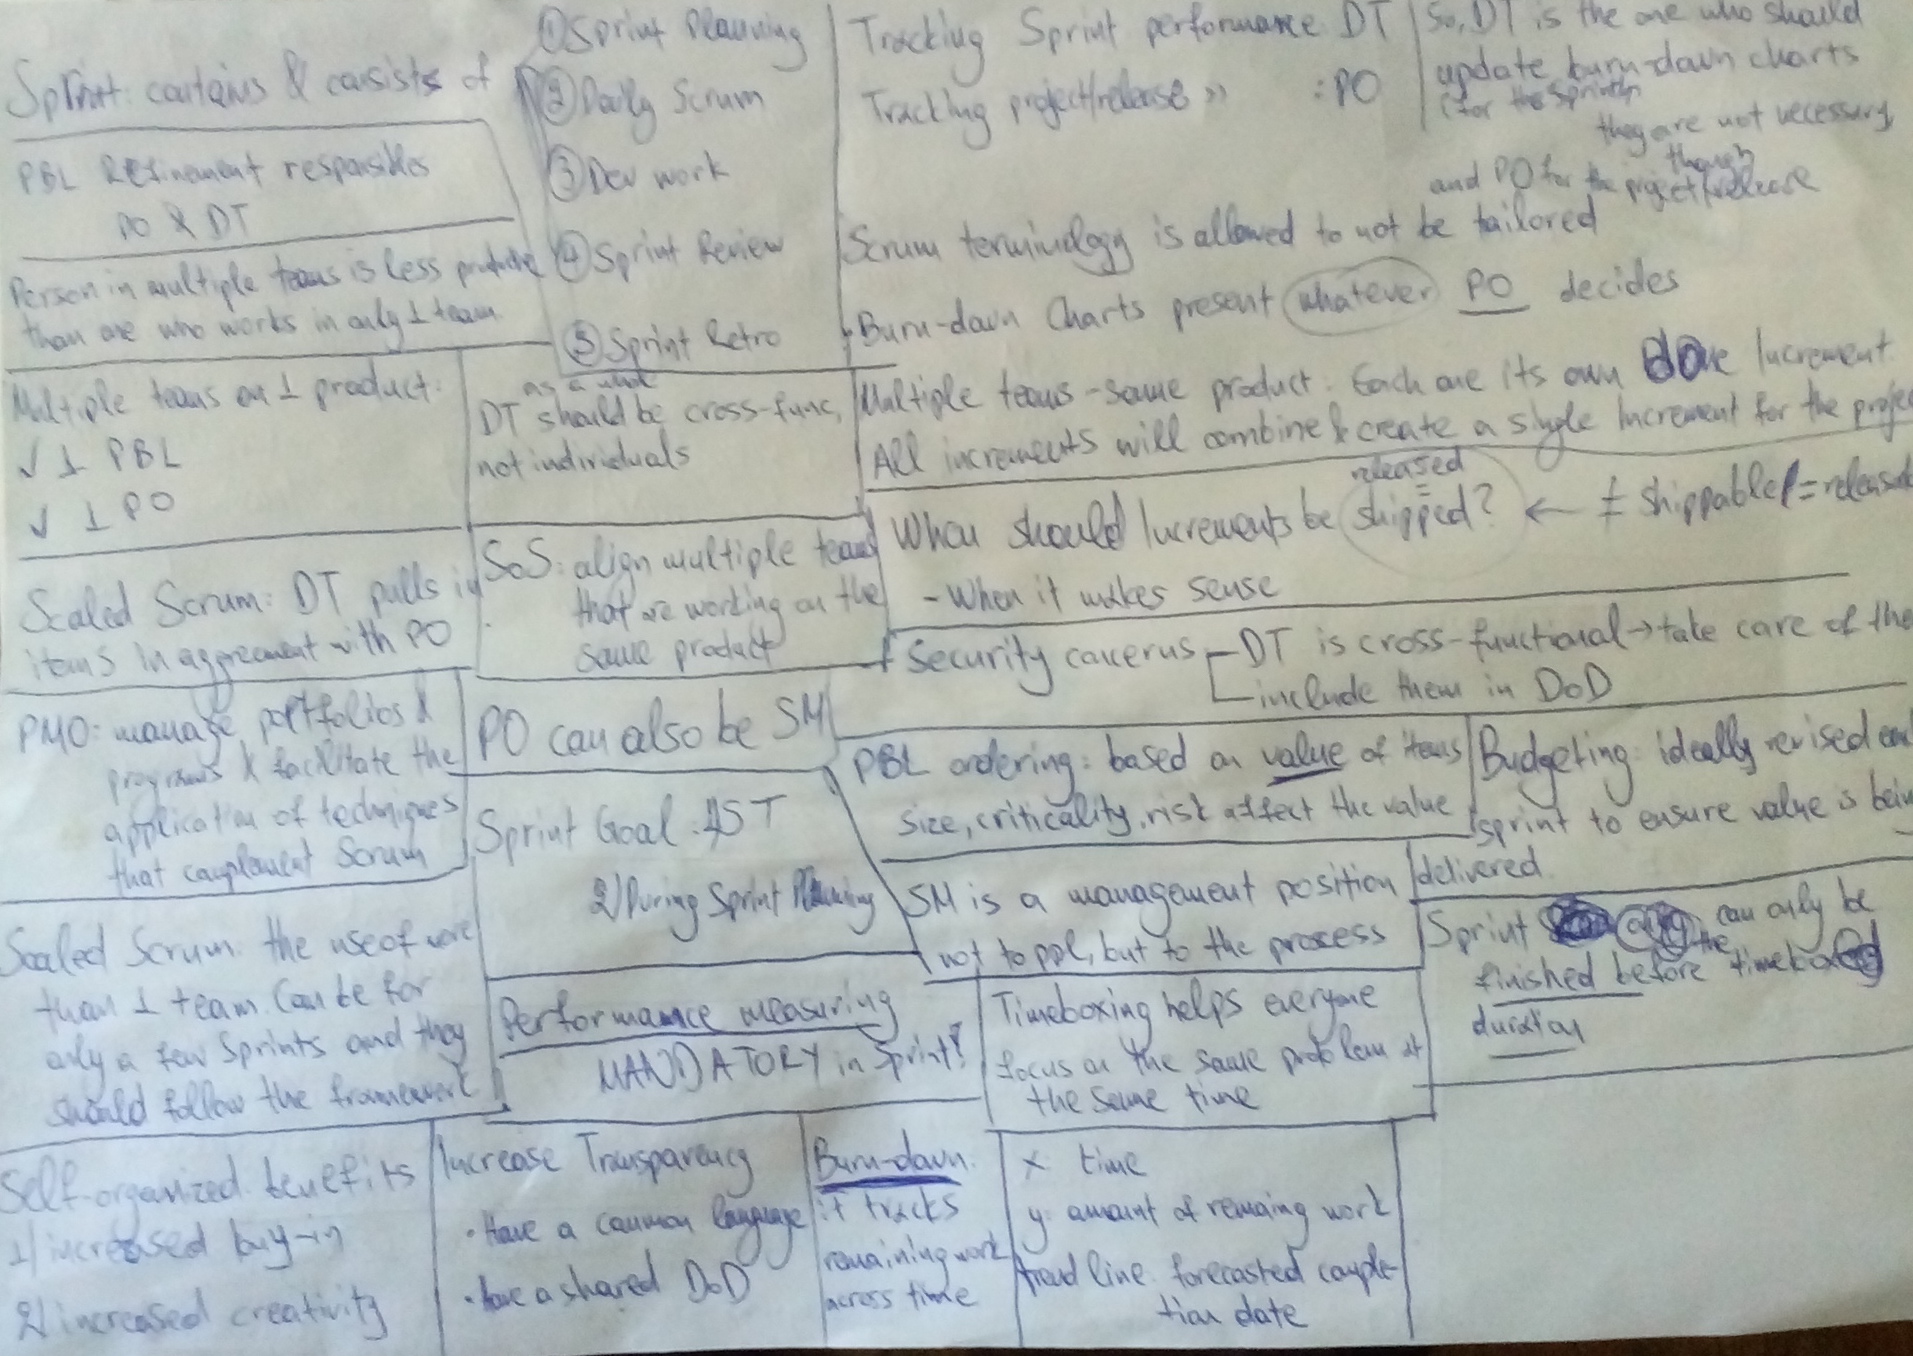 Sprint: contains & consists of
① Sprint Planning
② Daily Scrum
③ Dev work
④ Sprint Review
⑤ Sprint Retro
Tracking Sprint performance DT
Tracking project/release >> : PO
So, DT is the one who should
update burn-down charts
(for the sprint)
they are not necessary
though
and PO for the project/release
PBL Refinement responsibles
PO & DT
Person in multiple teams is less
than one who works in only 1 team
Scrum terminology is allowed to not be tailored
Burn-down Charts present whatever PO decides
Multiple teams on 1 product:
✓ 1 PBL
✓ 1 PO
as a whole
DT should be cross-func,
not individuals
Multiple teams - same product. Each one its own done Increment
All increments will combine & create a single Increment for the projec
released
When should Increments be shipped? ← ≠ shippable
- When it makes sense
Scaled Scrum: DT pulls in
items in aggreement with PO
SoS: align multiple teams
that are working on the
same product
Security concerns
DT is cross-functional → take care of the
include them in DoD
PMO: manage portfolios &
programs & facilitate the
application of techniques
that complement Scrum
PO can also be SM
PBL ordering: based on value of items
size, criticality, risk affect the value
Budgeting: ideally revised
sprint to ensure value is bein
delivered
Sprint Goal: 1) ST
2) During Sprint Planning
SM is a management position
not to ppl, but to the process
Sprint can only be
finished before the timebox
duration
Scaled Scrum: the use of more
than 1 team. Can be for
only a few Sprints and they
should follow the framework
Performance measuring
MANDATORY in Sprint!
Timeboxing helps everyone
focus on the same problem at
the same time
Self-organized benefits
1/ increased buy-in
2/ increased creativity
Increase Transparency
• Have a common language
• have a shared DoD
Burn-down:
it tracks
remaining work
across time
x: time
y: amount of remaing work
trend line: forecasted comple-
tion date